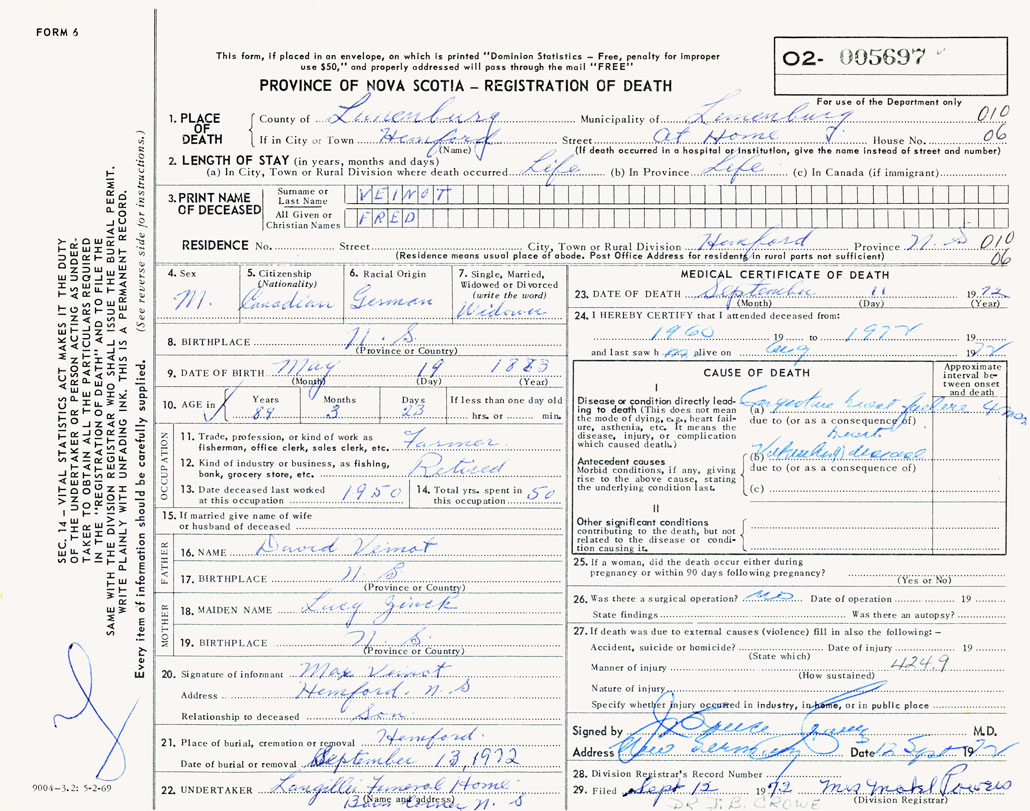 FORM 6
This form, if placed in an envelope, on which is printed "Dominion Statistics – Free, penalty for improper
use $50," and properly addressed will pass through the mail "FREE"
O2- 005697
PROVINCE OF NOVA SCOTIA – REGISTRATION OF DEATH
For use of the Department only
1. PLACE OF DEATH
County of Lunenburg Municipality of Lunenburg 010
If in City or Town Hemford Street At Home House No. 06
(Name) (If death occurred in a hospital or institution, give the name instead of street and number)
2. LENGTH OF STAY (in years, months and days)
(a) In City, Town or Rural Division where death occurred Life (b) In Province Life (c) In Canada (if immigrant)
3. PRINT NAME OF DECEASED
Surname or Last Name VEINOT
All Given or Christian Names FRED
RESIDENCE No. Street City, Town or Rural Division Hemford Province N.S 010
(Residence means usual place of abode. Post Office Address for residents in rural parts not sufficient) 06
4. Sex
M.
5. Citizenship
(Nationality)
Canadian
6. Racial Origin
German
7. Single, Married,
Widowed or Divorced
(write the word)
Widower
8. BIRTHPLACE N.S.
(Province or Country)
9. DATE OF BIRTH May 19 1883
(Month) (Day) (Year)
10. AGE in
Years Months Days If less than one day old
89 3 23 hrs. or min.
OCCUPATION
11. Trade, profession, or kind of work as
fishermon, office clerk, sales clerk, etc. Farmer.
12. Kind of industry or business, as fishing,
bank, grocery store, etc. Retired
13. Date deceased last worked
at this occupation 1950
14. Total yrs. spent in
this occupation 50
15. If married give name of wife
or husband of deceased
FATHER
16. NAME David Veinot
17. BIRTHPLACE N.S
(Province or Country)
MOTHER
18. MAIDEN NAME Lucy Zinck
19. BIRTHPLACE N.S.
(Province or Country)
20. Signature of informant Max Veinot
Address Hemford. N.S
Relationship to deceased Son
21. Place of burial, cremation or removal Hemford.
Date of burial or removal September 13, 1972
22. UNDERTAKER Langille Funeral Home
(Name and address)
N.S
MEDICAL CERTIFICATE OF DEATH
23. DATE OF DEATH September 11 1972
(Month) (Day) (Year)
24. I HEREBY CERTIFY that I attended deceased from:
1960 19 to 1972 19
and last saw h m alive on Aug 1972
CAUSE OF DEATH
Approximate
interval be-
tween onset
and death
I
Disease or condition directly lead-
ing to death (This does not mean
the mode of dying, e.g., heart fail-
ure, asthenia, etc. It means the
disease, injury, or complication
which caused death.)
(a) Congestive heart failure 4 mos
due to (or as a consequence of)
Antecedent causes
Morbid conditions, if any, giving
rise to the above cause, stating
the underlying condition last.
heart
(b) disease
due to (or as a consequence of)
(c)
II
Other significant conditions
contributing to the death, but not
related to the disease or condi-
tion causing it.
25. If a woman, did the death occur either during
pregnancy or within 90 days following pregnancy?
(Yes or No)
26. Was there a surgical operation? no Date of operation 19
State findings Was there an autopsy?
27. If death was due to external causes (violence) fill in also the following: –
Accident, suicide or homicide? Date of injury 19
(State which) 424.9
Manner of injury
(How sustained)
Nature of injury
Specify whether injury occurred in industry, in home, or in public place
Signed by M.D.
Address New Germany Date 12 Sept 1972
28. Division Registrar's Record Number
29. Filed Sept 12 1972 Mrs Powers
(Division Registrar)
DR J.B. CROWE
SEC. 14 – VITAL STATISTICS ACT MAKES IT THE DUTY
OF THE UNDERTAKER OR PERSON ACTING AS UNDER-
TAKER TO OBTAIN ALL THE PARTICULARS REQUIRED
IN THE "REGISTRATION OF DEATH" AND TO FILE THE
SAME WITH THE DIVISION REGISTRAR WHO SHALL ISSUE THE BURIAL PERMIT.
WRITE PLAINLY WITH UNFADING INK. THIS IS A PERMANENT RECORD.
Every item of information should be carefully supplied. (See reverse side for instructions.)
9004-3.2: 5-2-69